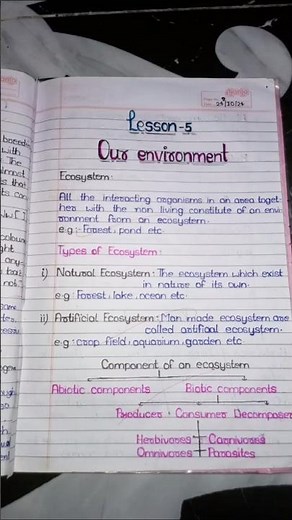 Lesson-5
Our environment
Ecosystem:
All the interacting organisms in an area toget-
her with the non living constitute of an envi-
ronment from an ecosystem.
e.g:- Forest, pond etc.
Types of Ecosystem:
i) Natural Ecosystem: The ecosystem which exist
in nature of its own.
e.g: Forest, lake, ocean etc.
ii) Artificial Ecosystem: Man made ecosystem are
called artifical ecosystem.
e.g: crop field, aquarium, garden etc
Component of an ecosystem
Abiotic components Biotic components
Producer Consumer Decomposer
Herbivores Carnivores
Omnivores Parasites